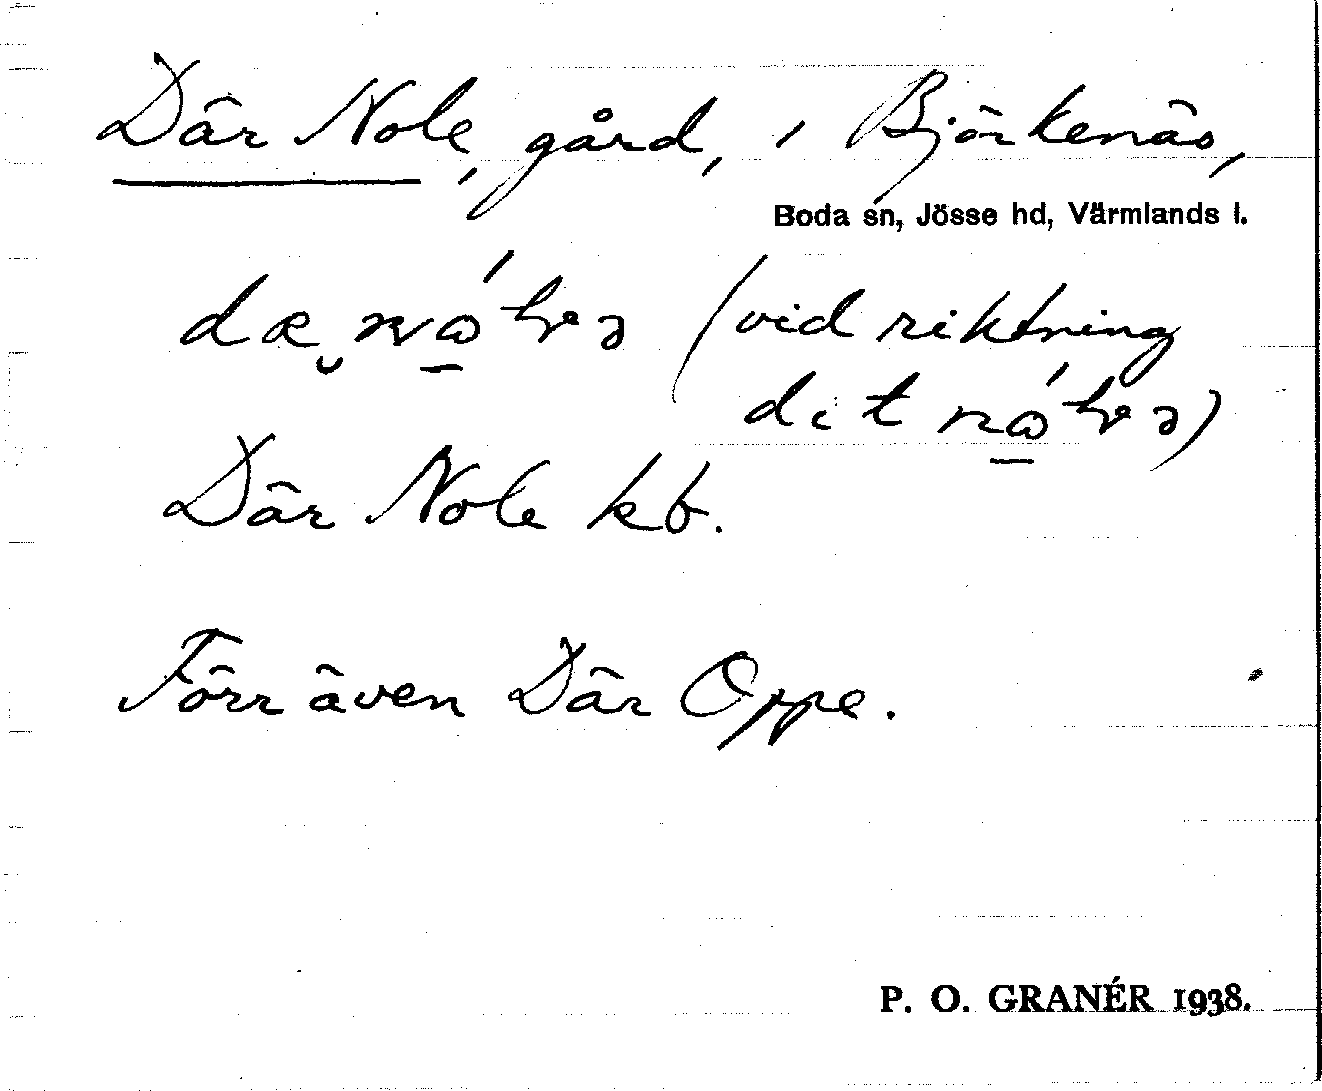 Där Nole, gård, i Björkenäs,
Boda sn, Jösse hd, Värmlands l.
(vid riktning
dit
Där Nole kb.
Förr även Där Oppe.
P. O. GRANÉR 1938.